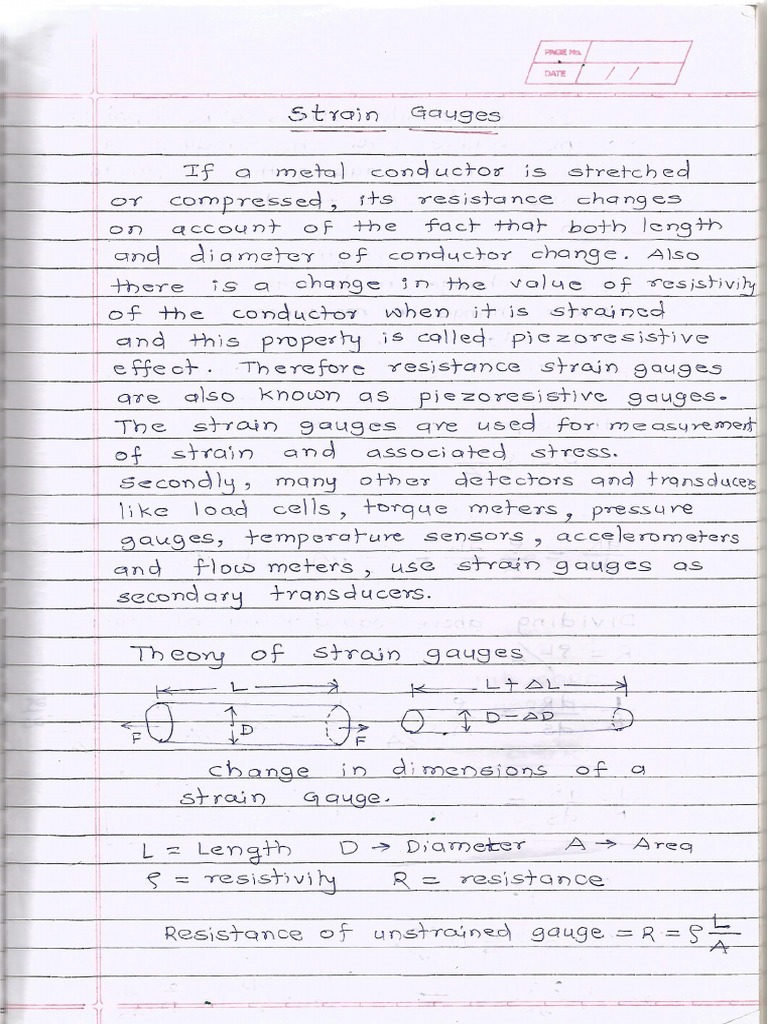 PAGE No.
DATE / /
Strain Gauges
If a metal conductor is stretched
or compressed, its resistance changes
on account of the fact that both length
and diameter of conductor change. Also
there is a change in the value of resistivity
of the conductor when it is strained
and this property is called piezoresistive
effect. Therefore resistance strain gauges
are also known as piezoresistive gauges.
The strain gauges are used for measurement
of strain and associated stress.
Secondly, many other detectors and transducers
like load cells, torque meters, pressure
gauges, temperature sensors, accelerometers
and flow meters, use strain gauges as
secondary transducers.
Theory of strain gauges
L
L + ΔL
F D F
D - ΔD
change in dimensions of a
strain Gauge.
L = Length D → Diameter A → Area
ρ = resistivity R = resistance
Resistance of unstrained gauge = R = ρ L/A